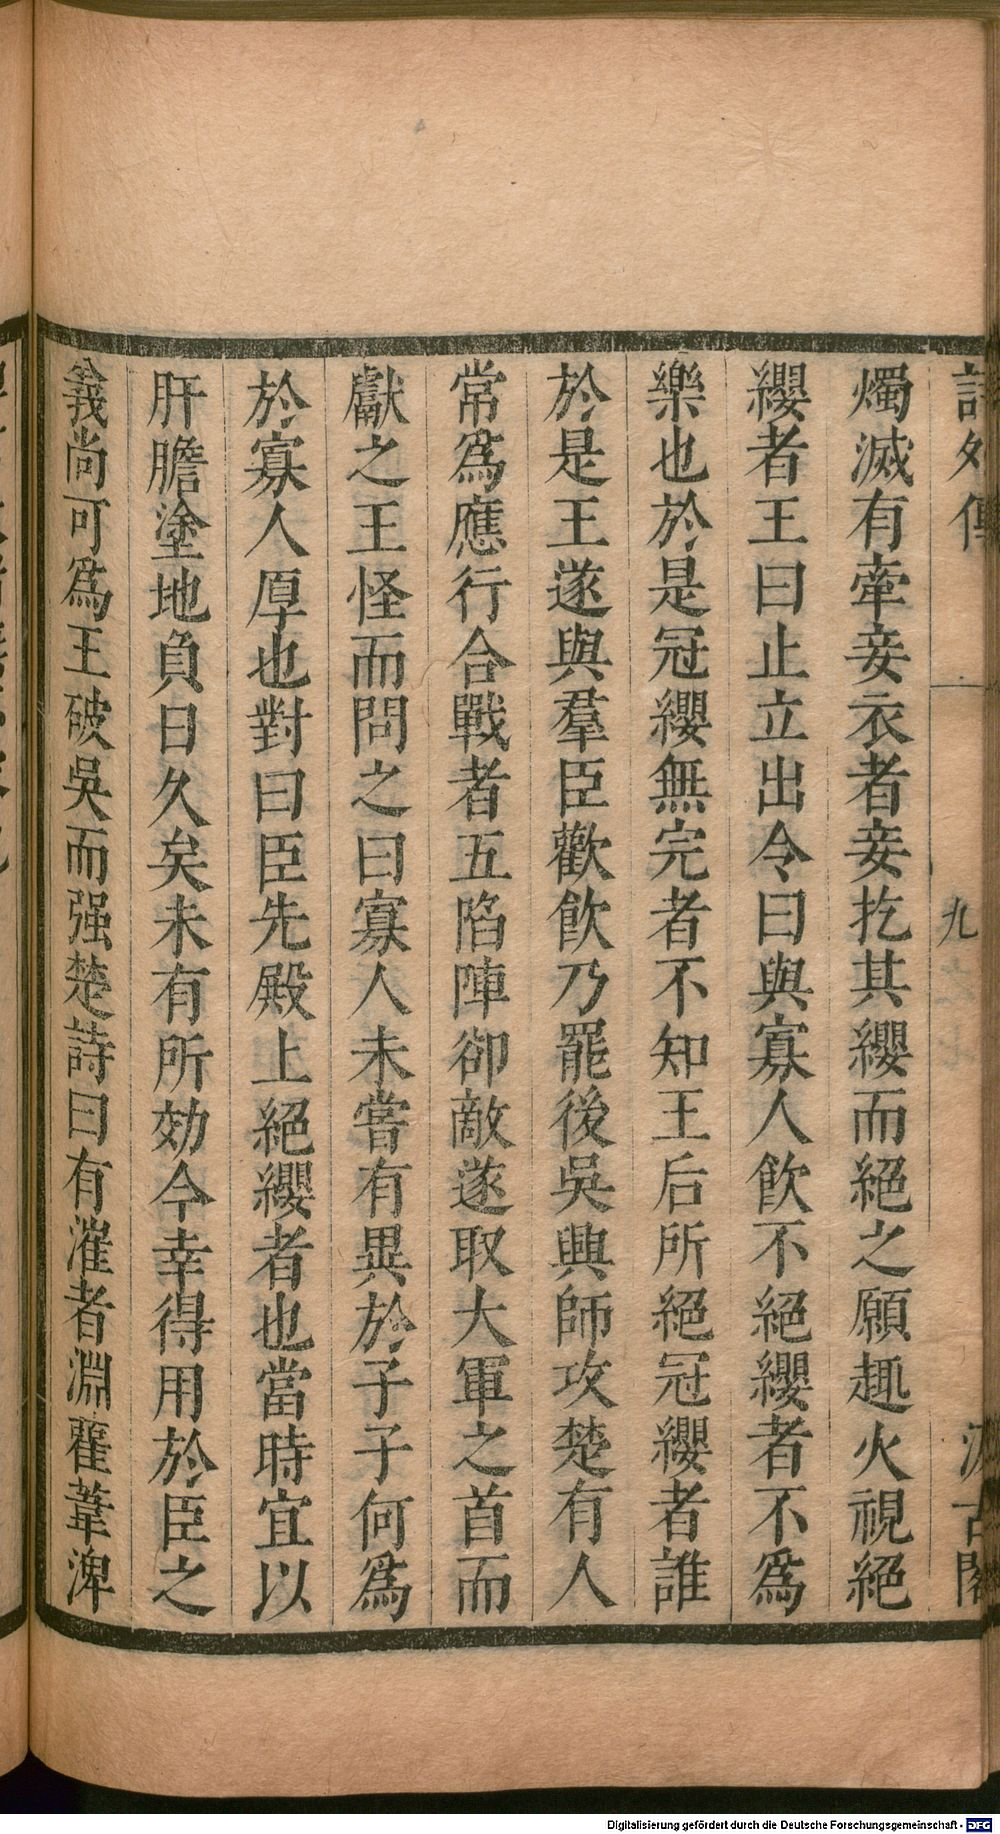 詩外傳 九 汲古閣
燭滅有牽妾衣者妾扢其纓而絕之願趣火視絕
纓者王曰止立出令曰與寡人飲不絕纓者不為
樂也於是冠纓無完者不知王后所絕冠纓者誰
於是王遂與羣臣歡飲乃罷後吳興師攻楚有人
常為應行合戰者五陷陣卻敵遂取大軍之首而
獻之王怪而問之曰寡人未嘗有異於子子何為
於寡人厚也對曰臣先殿上絕纓者也當時宜以
肝膽塗地負日久矣未有所効今幸得用於臣之
義尚可為王破吳而强楚詩曰有漼者淵雚葦渒
Digitalisierung gefördert durch die Deutsche Forschungsgemeinschaft - DFG